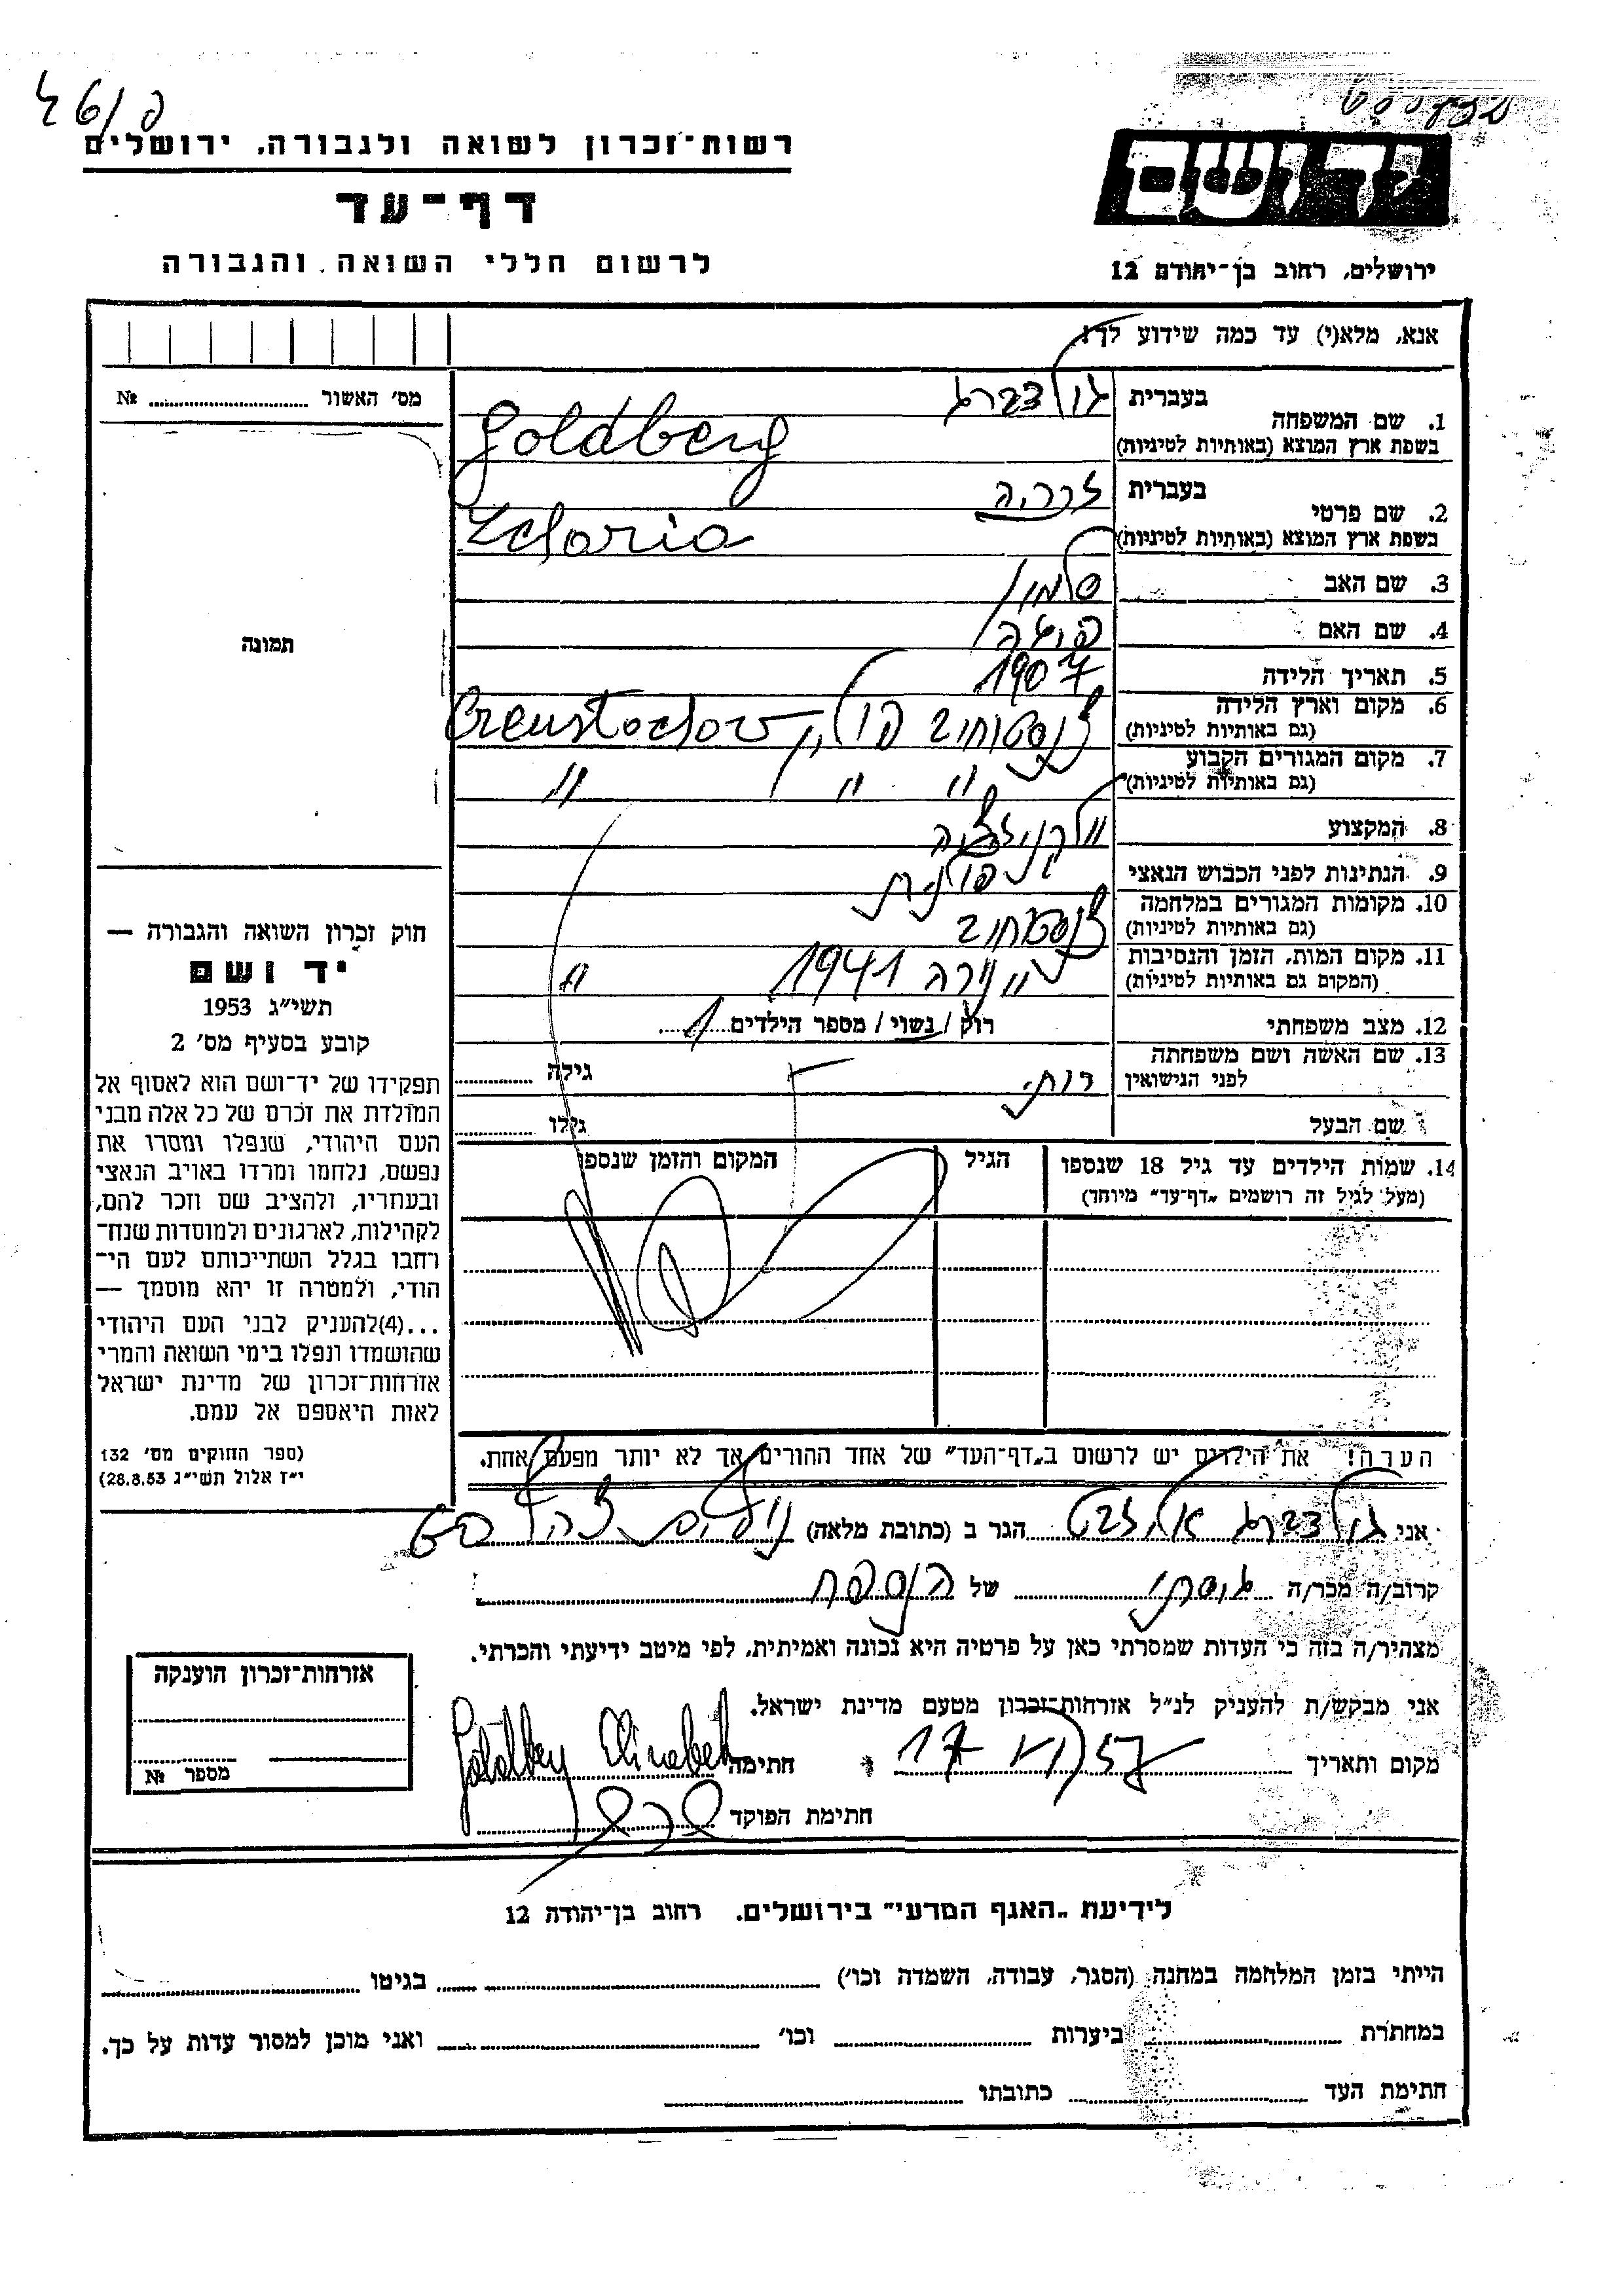 רשות־זכרון לשואה ולגבורה, ירושלים
דף־עד
לרשום חללי השואה והגבורה
יד ושם
ירושלים, רחוב בן־יהודה 12
אנא, מלא(י) עד כמה שידוע לך!
מס' האשור № ....................
תמונה
1. שם המשפחה
בעברית גולדברג
בשפת ארץ המוצא (באותיות לטיניות) Goldberg
2. שם פרטי
בעברית זכריה
בשפת ארץ המוצא (באותיות לטיניות)
3. שם האב סלמון
4. שם האם
5. תאריך הלידה 1907
6. מקום וארץ הלידה
(גם באותיות לטיניות)
7. מקום המגורים הקבוע
(גם באותיות לטיניות) " " "
8. המקצוע
9. הנתינות לפני הכבוש הנאצי פולנית
10. מקומות המגורים במלחמה
(גם באותיות לטיניות)
11. מקום המות, הזמן והנסיבות
(המקום גם באותיות לטיניות) 1941 "
12. מצב משפחתי רוק / נשוי / מספר הילדים 1
13. שם האשה ושם משפחתה
לפני הנישואין
גילה
שם הבעל
גילו
14. שמות הילדים עד גיל 18 שנספו
(מעל לגיל זה רושמים „דף־עד" מיוחד)
הגיל
המקום והזמן שנספו
הערה! את הילדים יש לרשום ב„דף־העד" של אחד ההורים אך לא יותר מפעם אחת.
חוק זכרון השואה והגבורה —
יד ושם
תשי"ג 1953
קובע בסעיף מס' 2
תפקידו של יד־ושם הוא לאסוף אל
המולדת את זכרם של כל אלה מבני
העם היהודי, שנפלו ומסרו את
נפשם, נלחמו ומרדו באויב הנאצי
ובעוזריו, ולהציב שם וזכר להם,
לקהילות, לארגונים ולמוסדות שנח־
רבו בגלל השתייכותם לעם הי־
הודי, ולמטרה זו יהא מוסמך —
...(4)להעניק לבני העם היהודי
שהושמדו ונפלו בימי השואה והמרי
אזרחות־זכרון של מדינת ישראל
לאות היאספם אל עמם.
(ספר החוקים מס' 132
י"ז אלול תשי"ג 28.8.53)
אני גולדברג אליזבט הגר ב (כתובת מלאה)
קרוב/ה מכר/ה גיסתי של הנספה
מצהיר/ה בזה כי העדות שמסרתי כאן על פרטיה היא נכונה ואמיתית, לפי מיטב ידיעתי והכרתי.
אני מבקש/ת להעניק לנ"ל אזרחות־זכרון מטעם מדינת ישראל.
מקום ותאריך 17 VI 57 חתימה Goldberg Elisabeth
חתימת הפוקד
אזרחות־זכרון הוענקה
מספר №
לידיעת „האגף המדעי" בירושלים, רחוב בן־יהודה 12
הייתי בזמן המלחמה במחנה (הסגר, עבודה, השמדה וכו') בגיטו
במחתרת ביערות וכו' ואני מוכן למסור עדות על כך.
חתימת העד כתובתו